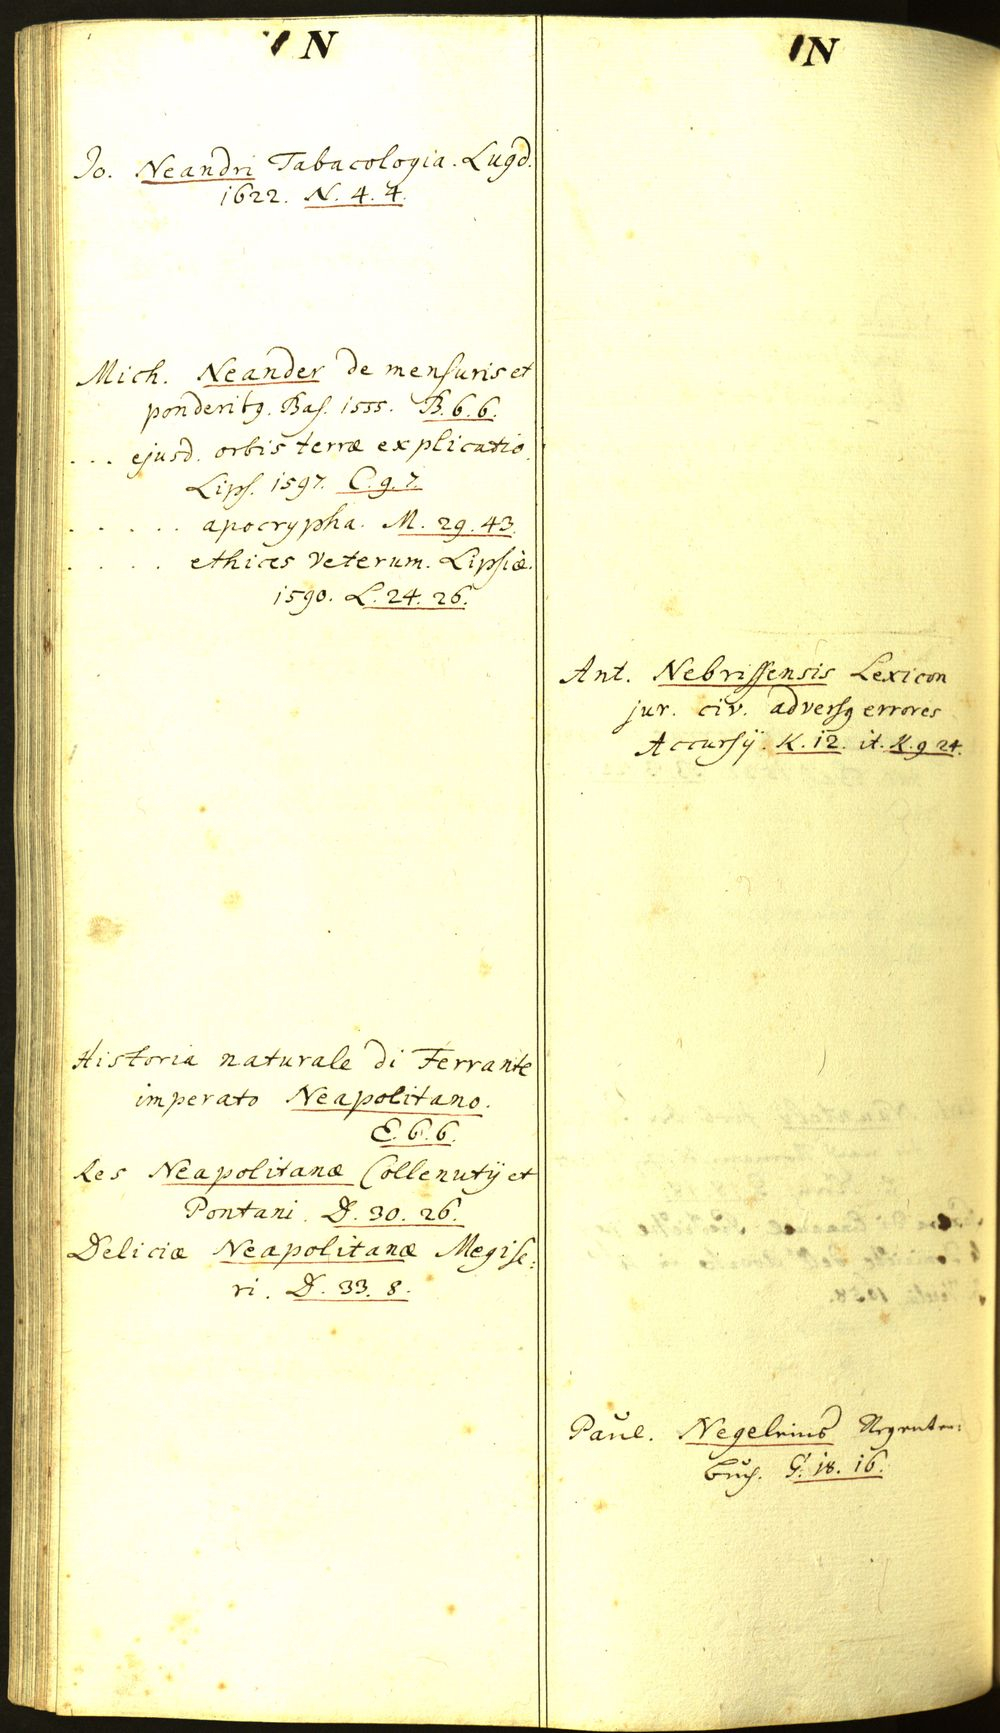 N
Jo. Neandri Tabacologia. Lugd.
1622. N. 4. 4.
Mich. Neander de mensuris et
ponderibꝫ. Bas. 1555. B. 6. 6.
... ejusd. orbis terræ explicatio.
Lips. 1597. C. 9. 7.
. . . . . apocrypha. M. 29. 43.
. . . . ethices veterum. Lipsiæ.
1590. L. 24. 26.
Historia naturale di Ferrante
imperato Neapolitano.
E. 6. 6.
Res Neapolitanæ Collenutij et
Pontani. D. 30. 26.
Deliciæ Neapolitanæ Megise:
ri. D. 33. 8.
N
Ant. Nebrissensis Lexicon
jur. civ. adversꝰ errores
Accursij. K. 12. it. K. 9 24.
Paul. Negeleins
buch. G. 18. 16.